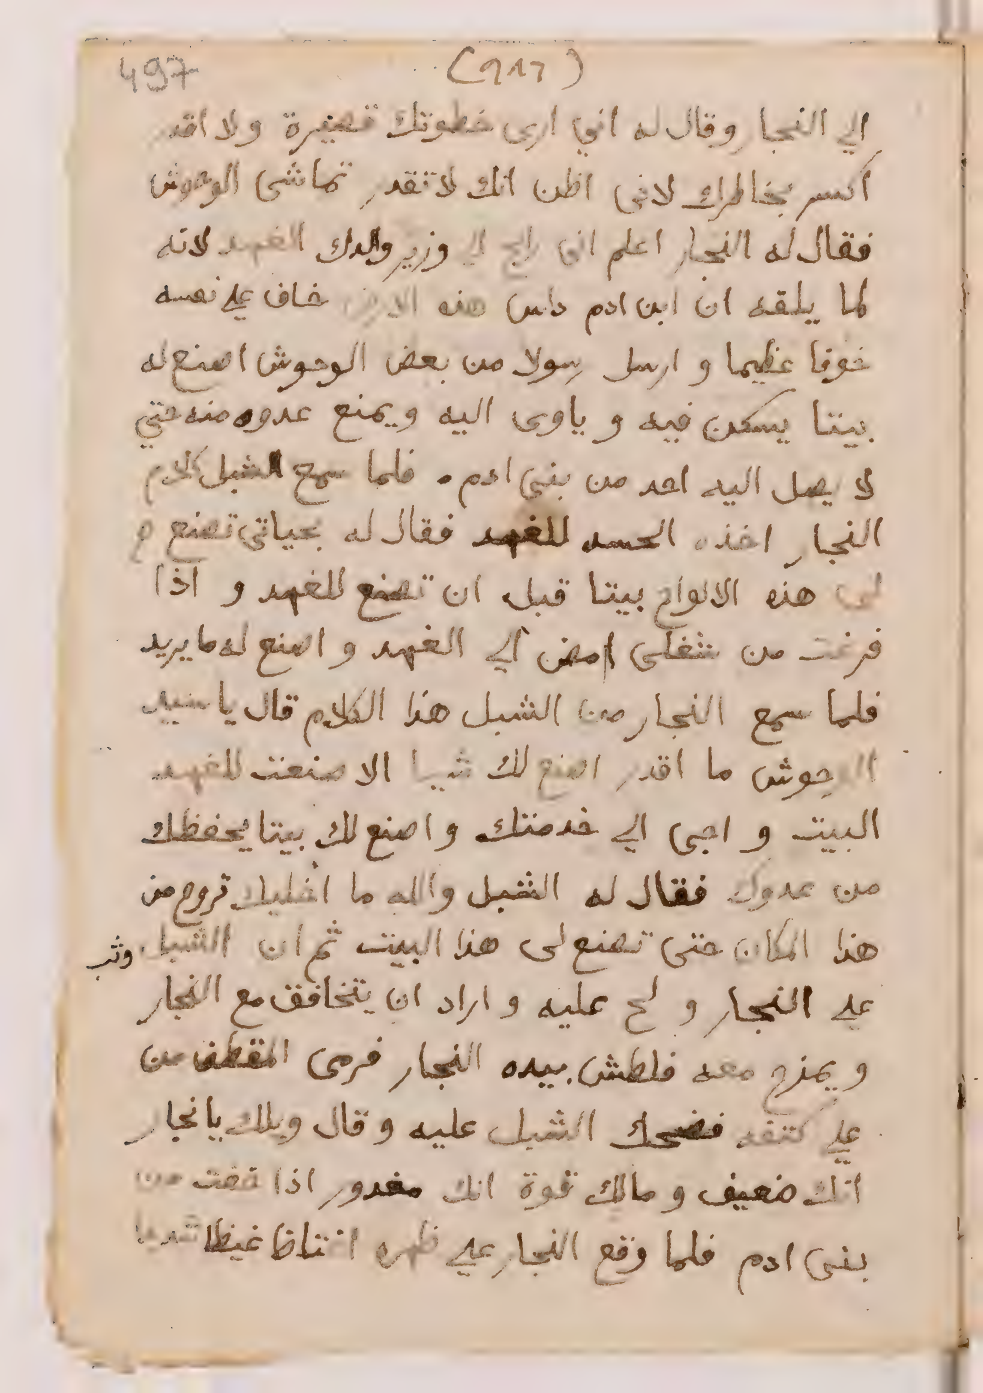 497
(٩١٦)
الي النجار وقال له اني ارى خطوتك قصيرة ولا اقدر
اكسر بخاطرك لانى اظن انك لا تقدر تماشى الوحوش
فقال له النجار اعلم انى رايح الى وزير والدك الفهد لانه
لما يلقه ان ابن ادم داس هذه الارض خاف علي نفسه
خوفا عظيما و ارسل رسولا من بعض الوحوش اصنع له
بيتا يسكن فيه و ياوى اليه ويمنع عدوه منه حتي
لا يصل اليه احد من بنى ادم . فلما سمع الشبل كلام
النجار اخذه الحسد للفهد فقال له بحياتى تصنع
لى هذه الالواح بيتا قبل ان تصنع للفهد و اذا
فرغت من شغلى امض الي الفهد و اصنع له ما يريد
فلما سمع النجار من الشبل هذا الكلام قال يا سيد
الوحوش ما اقدر اصنع لك شيا الا صنعت للفهد
البيت و اجى الي خدمتك و اصنع لك بيتا يحفظك
من عدوك فقال له الشبل والله ما اخليك تروح من
هذا المكان حتى تصنع لى هذا البيت ثم ان الشبل وثب
علي النجار و لح عليه و اراد ان يتخافق مع النجار
و يمزح معه فلطش بيده النجار فرمى المقطف من
علي كتفه فضحك الشبل عليه و قال ويلك يا نجار
انك ضعيف و مالك قوة انك معدور اذا خفت من
بنى ادم فلما وقع النجار علي ظهره اغتاظ غيظا شديدا